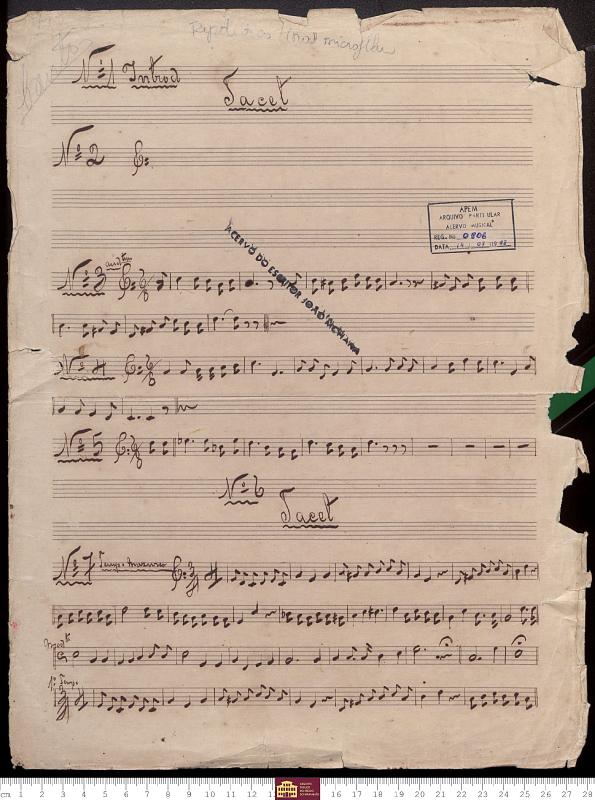 Nº 1 Introd
Tacet
Nº 2
APEM
ARQUIVO PARTICULAR
ACERVO MUSICAL
REG. Nº 0806
ACERVO DO ESCRITOR JOÃO MOHANA
Nº 3
Nº 4
Nº 5
Nº 6
Tacet
Nº 7 Tempo Mazurca
1º Tempo
cm 1 2 3 4 5 6 7 8 9 10 11 12 16 17 18 19 20 21 22 23 24 25 26 27 28